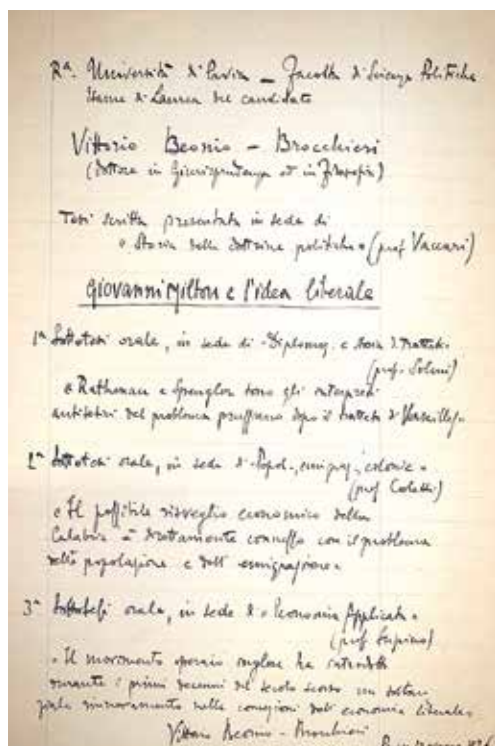 Rª. Università di Pavia – Facoltà di Scienze Politiche
Esame di Laurea del candidato
Vittorio Beonio – Brocchieri
(dottore in Giurisprudenza ed in Filosofia)
Tesi scritta presentata in sede di
"Storia delle dottrine politiche" (prof Vaccari)
Giovanni Milton e l'idea liberale
1ª Sottotesi orale, in sede di "Diplomaz. e storia d. Trattati"
(prof. Solmi)
"Rathenau e Spengler sono gli interpreti
antitetici del problema prussiano dopo il trattato di Versailles"
2ª Sottotesi orale, in sede di "Popol., emigraz., colonie"
(prof Coletti)
"Il possibile risveglio economico della
Calabria è direttamente connesso con il problema
della popolazione e dell'emigrazione"
3ª Sottotesi orale, in sede di "Economia Applicata"
(prof Supino)
"Il movimento operaio inglese ha introdotto
durante i primi decenni del secolo scorso un
miglioramento nelle condizioni dell'economia liberale"
Vittorio Beonio – Brocchieri